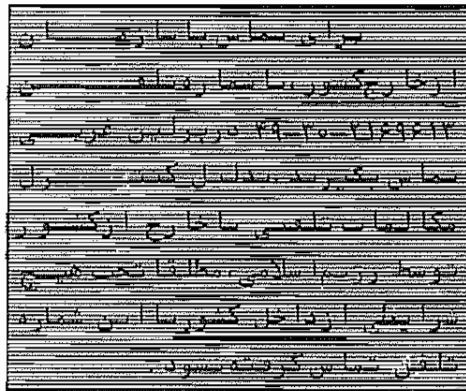 برای تماس با سازمان
از خارج کشور، با شماره تلفن
۲۱۶۹۶۱۲-۳۰-۴۹ در برلین غربی
تماس بگیرید. بدلیل کنترل
مکالمات تلفنی با خارج از کشور
توسط رژیم اسلامی، مطلقا تحت هیچ
شرایطی از داخل کشور با این شماره
تلفن تماس گرفته نشود.